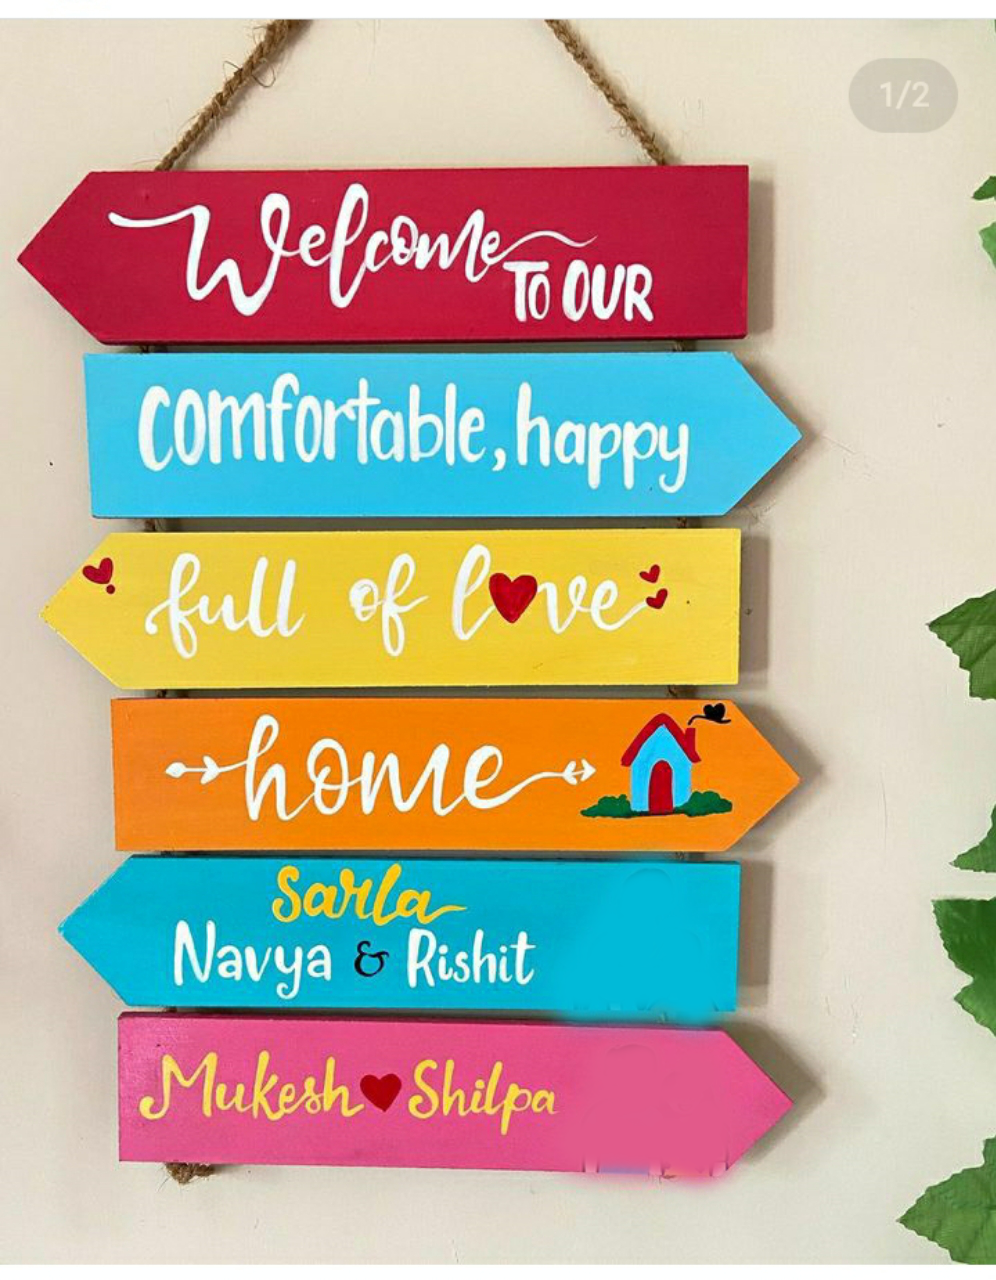 1/2
Welcome
TO OUR
comfortable, happy
full of love
home
Sarla
Navya & Rishit
Mukesh Shilpa